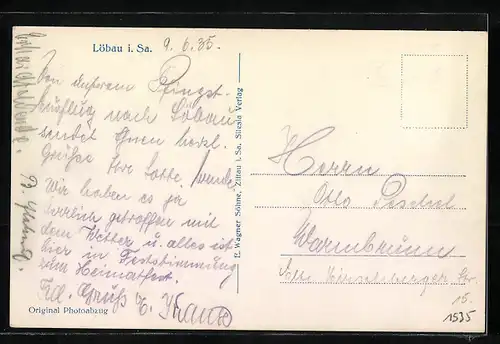 Löbau i. Sa. 9.6.35.
Von unserem Pfingst-
ausflug nach Löbau
sendet Ihnen herzl.
Grüße Ihre Lotte.
Wir haben es ja
herrlich getroffen mit
dem Wetter u. alles ist
hier in Feststimmung
zum Heimatfest.
Gruß
Original Photoabzug
E. Wagner Söhne, Zittau i. Sa. Silesia Verlag
Herrn
Otto
Warmbrunn
Hirschberger
15.
1535